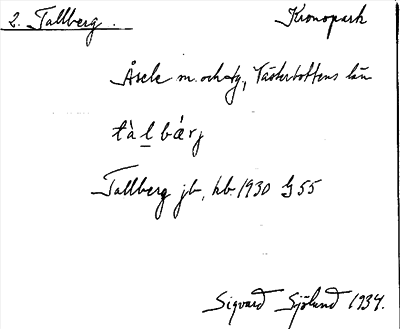 2. Tallberg. Kronopark
Åsele m. och sg, Västerbottens län
tàl bárj
Tallberg jb, hb. 1930 G 55
Sigvard Sjölund 1934.